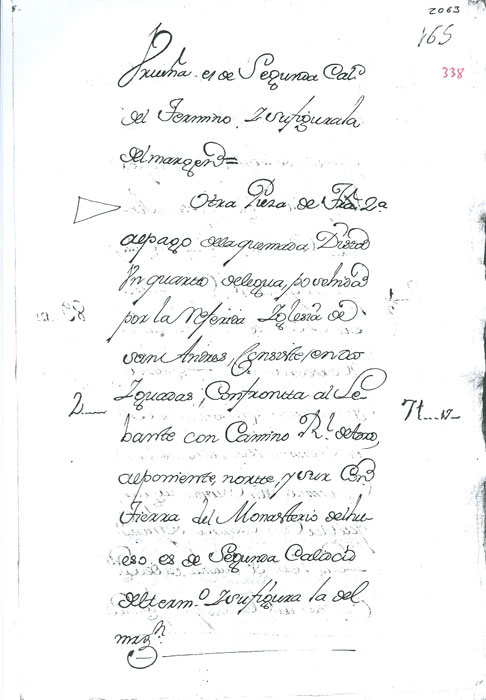 2063
165
338
es de Segunda Cal.ᵈ
del Termino, Isufigura la
del margen=
Otra Pieza, de Trâ 2.ª
al pago de la quemada, Dista
Un quarto de legua, posehida
por la referida Iglesia de
san Andres, Consiste, en dos
Iguadas, Confronta al Le
2
bante con Camino R.ˡ de toro,
al poniente, norte, y sur Con
Tierra del Monasterio del hu-
eso es de Segunda Calidad
del term.º Isufigura la del
mrgⁿ